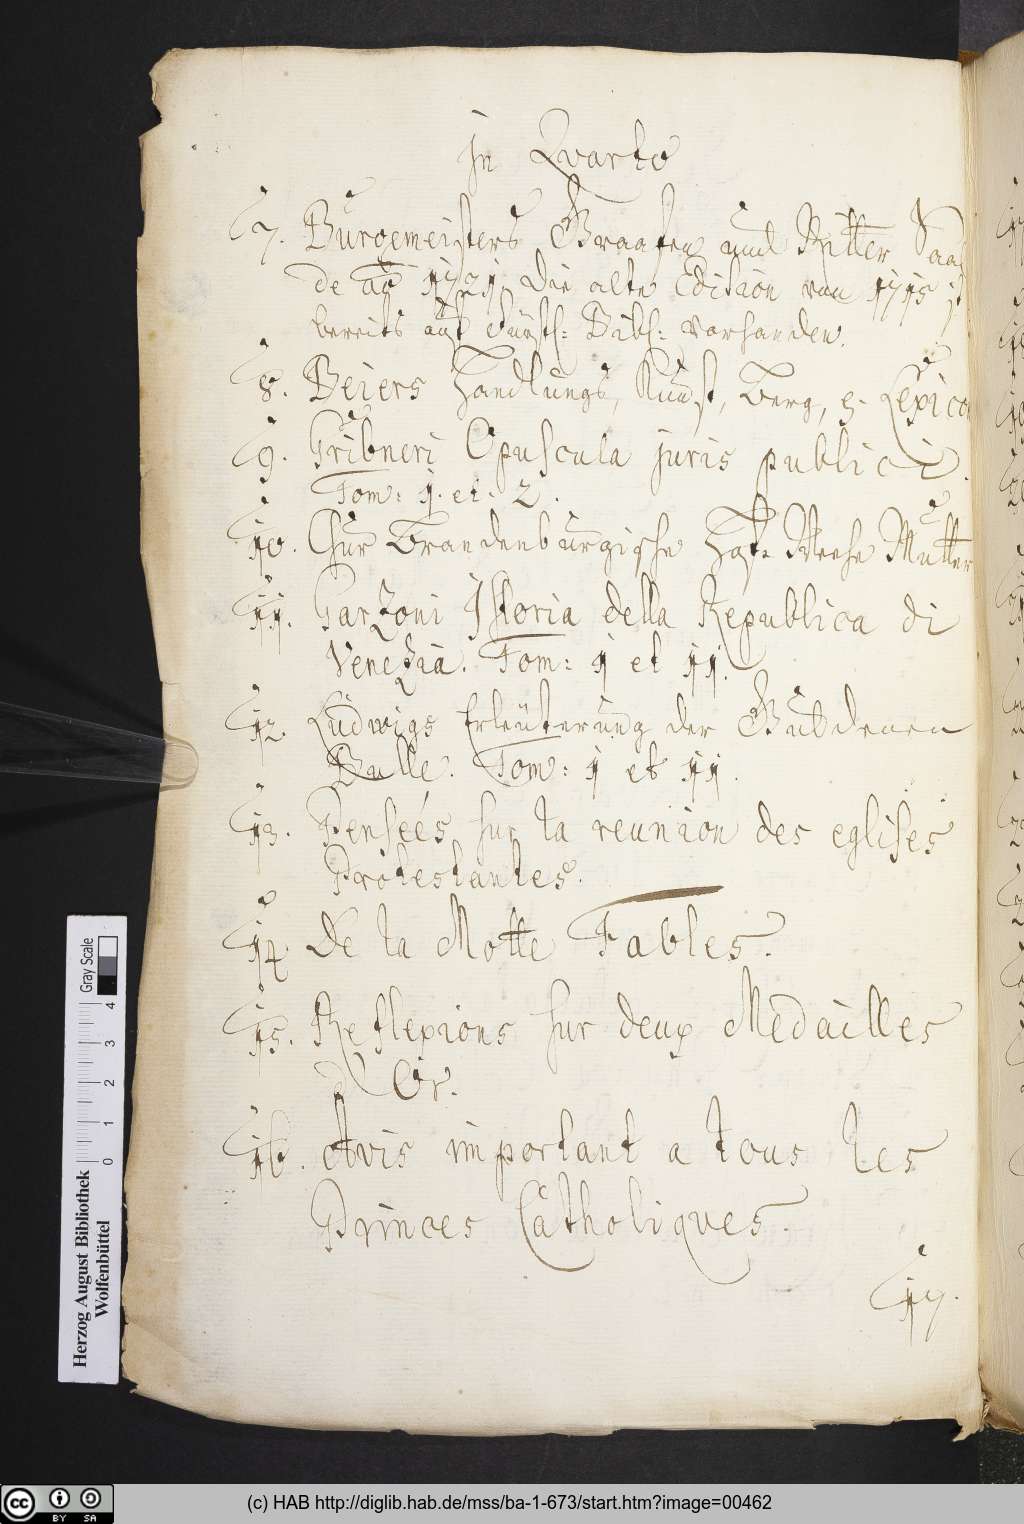 In Qvarto
7. Burgemeisters Graafen und Ritter Saa
de aõ 1721. Die alte Edition von 1715 ist
bereits auf Fürstl: Bibl: vorhanden.
8. Beiers Handlungs, Kunst, Berg, Lexico
9. Gribneri Opuscula juris publici.
Tom: 1. et. 2.
10. Chur Brandenburgische Mutter
11. Garzoni Istoria della Republica di
Venezia. Tom: 1 et 11.
12. Ludwigs Erleüterung der Guldenen
Bulle. Tom: 1 et 11.
13. Pensées sur la reunion des eglises
Protestantes.
14. De la Motte Fables.
15. Reflexions sur deux Medailles
d'Or.
16. Avis important a tous les
Princes Catholiques.
17.
Gray Scale
4 3 2 1 0
Herzog August Bibliothek
Wolfenbüttel
cc BY SA
(c) HAB http://diglib.hab.de/mss/ba-1-673/start.htm?image=00462